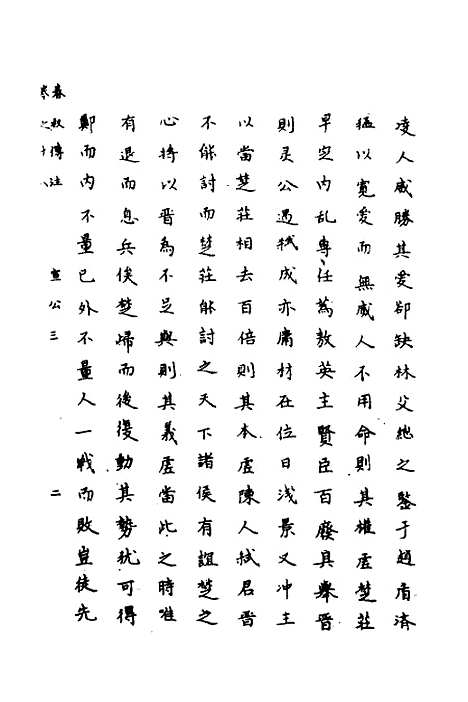 凌人威勝其愛卻缺林父绝之鑒于趙盾濟
猛以寬愛而無威人不用命則其權虛楚莊
早定內乱專任蒍敖英主賢臣百廢具舉晋
則灵公遇弒成亦庸材在位日淺景又冲主
以當楚莊相去百倍則其本虛陳人弒君晋
不能討而楚莊能討之天下諸侯有誼楚之
心將以晋為不足與則其義虛當此之時唯
有退而息兵俟楚歸而後復動其勢犹可得
鄭而內不量已外不量人一戰而敗豈徒先
春秋傳注 宣公三 二
卷之十八